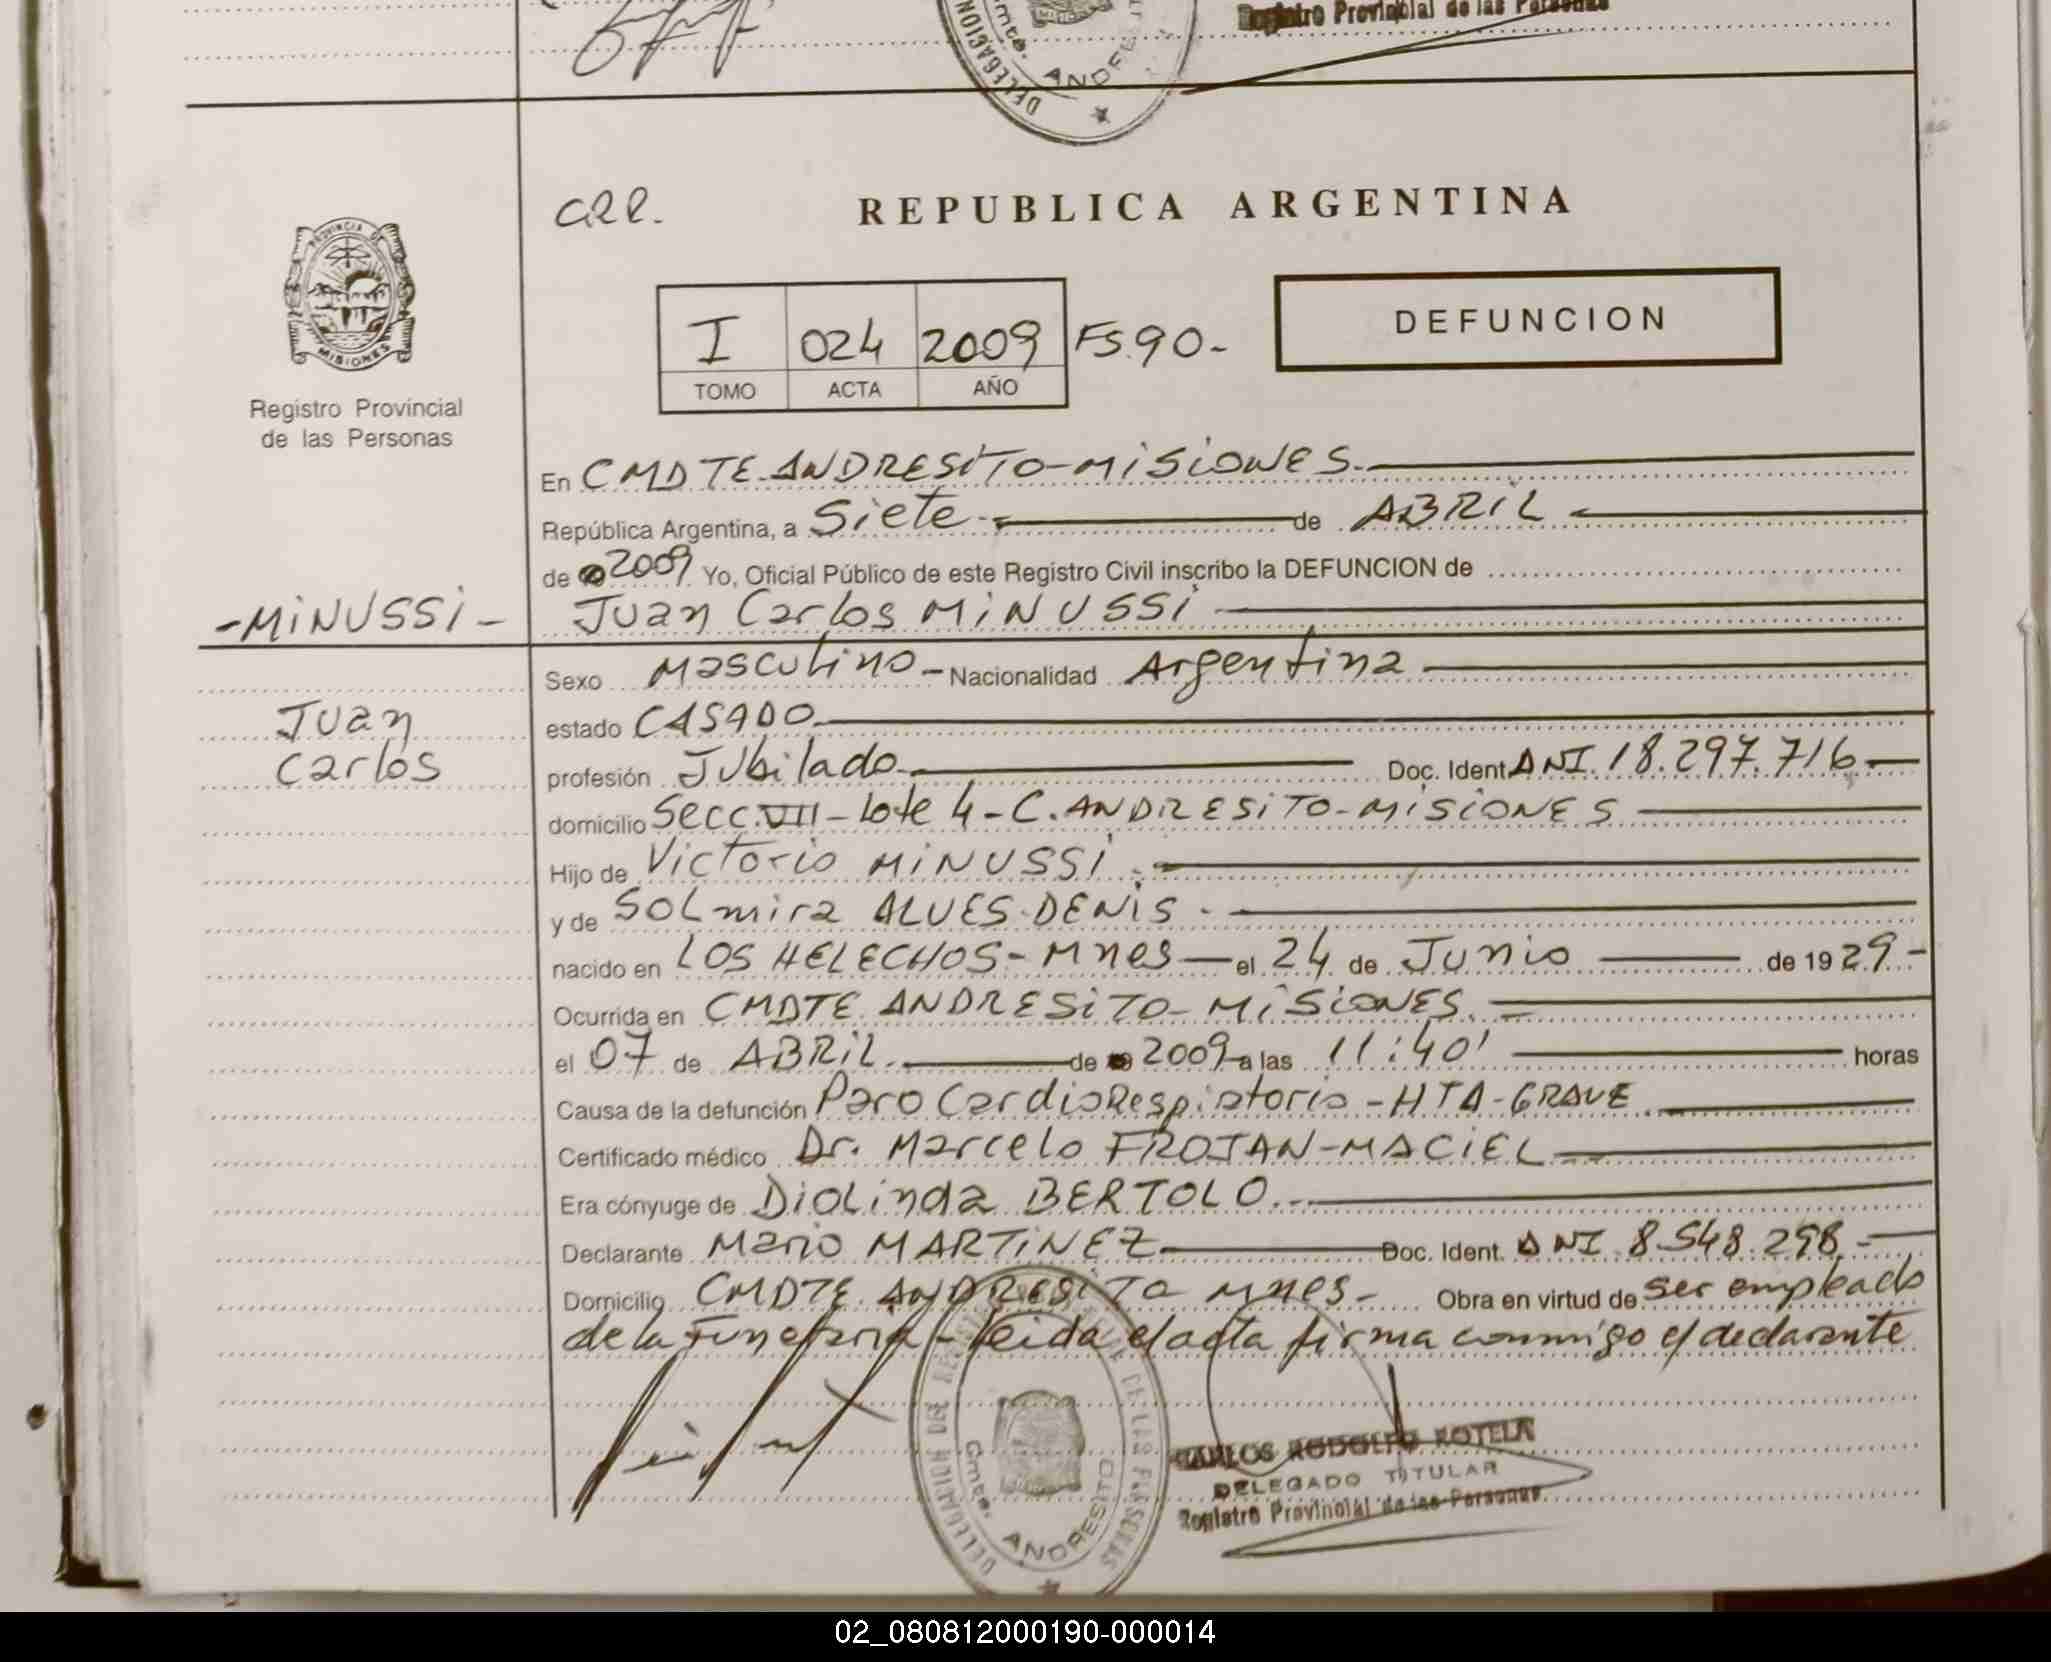 Registro Provincial de las Personas
DELEGACION
Cmte. ANDRE
PROVINCIA DE
MISIONES
Registro Provincial
de las Personas
CRR.
REPUBLICA ARGENTINA
I 024 2009 FS.90-
TOMO ACTA AÑO
DEFUNCION
En CMDTE-ANDRESITO-MISIONES.
República Argentina, a Siete de ABRIL
de 2009 Yo, Oficial Público de este Registro Civil inscribo la DEFUNCION de
-MINUSSI-
Juan Carlos MINUSSI
Juan
Carlos
Sexo Masculino - Nacionalidad Argentina
estado CASADO
profesión Jubilado Doc. Ident DNI. 18.297.716
domicilio Secc.VII - Lote 4 - C. ANDRESITO-MISIONES
Hijo de Victorio MINUSSI.
y de SOLmira ALVES-DENIS.
nacido en LOS HELECHOS - Mnes - el 24 de Junio de 1929-
Ocurrida en CMDTE ANDRESITO-MISIONES.
el 07 de ABRIL. de 2009 a las 11:40' horas
Causa de la defunción Paro CardioRespiratorio - HTA - GRAVE
Certificado médico Dr. Marcelo FROJAN-MACIEL
Era cónyuge de Diolinda BERTOLO.
Declarante Mario MARTINEZ Doc. Ident. DNI 8.548.298
Domicilio CMDTE ANDRESITO Mnes- Obra en virtud de ser empleado
de la Funeraria - leida el acta firma conmigo el declarante
Cmte. ANDRESITO
CARLOS RODOLFO ROTELA
DELEGADO TITULAR
Registro Provincial de las Personas
02_080812000190-000014